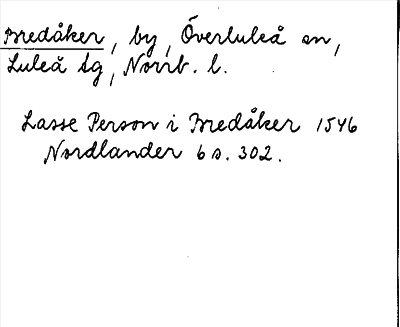 Bredåker, by, Överluleå sn,
Luleå tg, Norrb. l.
Lasse Person i Bredåker 1546
Nordlander 6 s. 302.